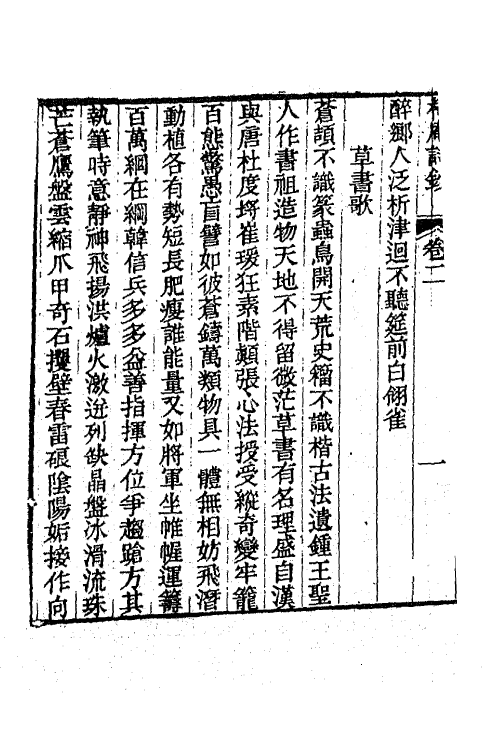 卷二
一
醉鄉人泛析津迴不聽筵前白翎雀
草書歌
蒼頡不識篆蟲鳥開天荒史籀不識楷古法遺鍾王聖
人作書祖造物天地不得留微茫草書有名理盛自漢
與唐杜度埓崔瑗狂素階顚張心法授受縱奇變牢籠
百態驚愚盲譬如彼蒼鑄萬類物具一體無相妨飛潛
動植各有勢短長肥瘦誰能量又如將軍坐帷幄運籌
百萬綱在綱韓信兵多多益善指揮方位爭趨蹌方其
執筆時意靜神飛揚洪爐火激迸列缺晶盤冰滑流珠
芒蒼鷹盤雲縮爪甲奇石攫壁春雷硠陰陽姤接作向